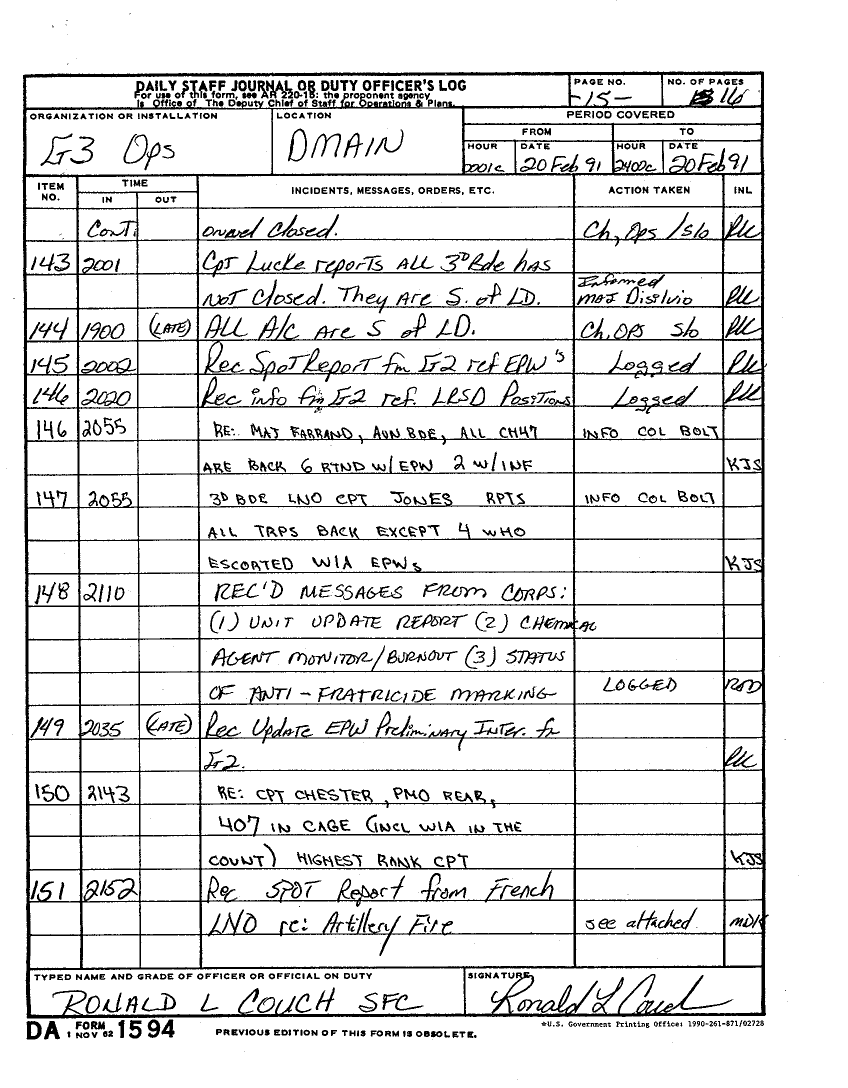 DAILY STAFF JOURNAL OR DUTY OFFICER'S LOG
For use of this form, see AR 220-15: the proponent agency
is Office of The Deputy Chief of Staff for Operations & Plans.
PAGE NO.
-15-
NO. OF PAGES
16
ORGANIZATION OR INSTALLATION
G3 Ops
LOCATION
DMAIN
PERIOD COVERED
FROM TO
HOUR DATE HOUR DATE
0001c 20 Feb 91 2400c 20 Feb 91
ITEM NO. TIME IN OUT INCIDENTS, MESSAGES, ORDERS, ETC. ACTION TAKEN INL
Cont. closed. Ch, Ops / S/o
143 2001 Cpt Lucke reports ALL 3D Bde has
Not Closed. They Are S. of LD. Informed MAJ Disilvio
144 1900 (LATE) ALL A/C are S of LD. Ch, OPS S/o
145 2002 Rec Spot Report fm G2 ref EPW's Logged
146 2020 Rec info fm G2 ref. LRSD Positions Logged
146 2055 RE: MAJ FARRAND, AVN BDE, ALL CH47 INFO COL BOLT
ARE BACK 6 RTND W/EPW 2 W/INF KJS
147 2055 3D BDE LNO CPT JONES RPTS INFO COL BOLT
ALL TRPS BACK EXCEPT 4 WHO
ESCORTED WIA EPWs KJS
148 2110 REC'D MESSAGES FROM CORPS:
(1) UNIT UPDATE REPORT (2) CHEMICAL
AGENT MONITOR/BURNOUT (3) STATUS
OF ANTI-FRATRICIDE MARKING LOGGED
149 2035 (LATE) Rec Update EPW Preliminary Inter. fr
G2.
150 2143 RE: CPT CHESTER, PMO REAR,
407 IN CAGE (INCL WIA IN THE
COUNT) HIGHEST RANK CPT KJS
151 2152 Rec SPOT Report from French
LNO re: Artillery Fire see attached MDK
TYPED NAME AND GRADE OF OFFICER OR OFFICIAL ON DUTY
RONALD L COUCH SFC
SIGNATURE
Ronald L Couch
DA FORM 1 NOV 62 1594
PREVIOUS EDITION OF THIS FORM IS OBSOLETE.
*U.S. Government Printing Office: 1990-261-871/02728